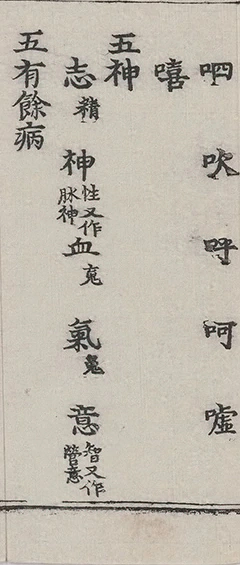 呬 吹 呼 呵 嘘
嘻
五神
志精 神性又作脉神 血䰟 氣魄 意智又作營意
五有餘病